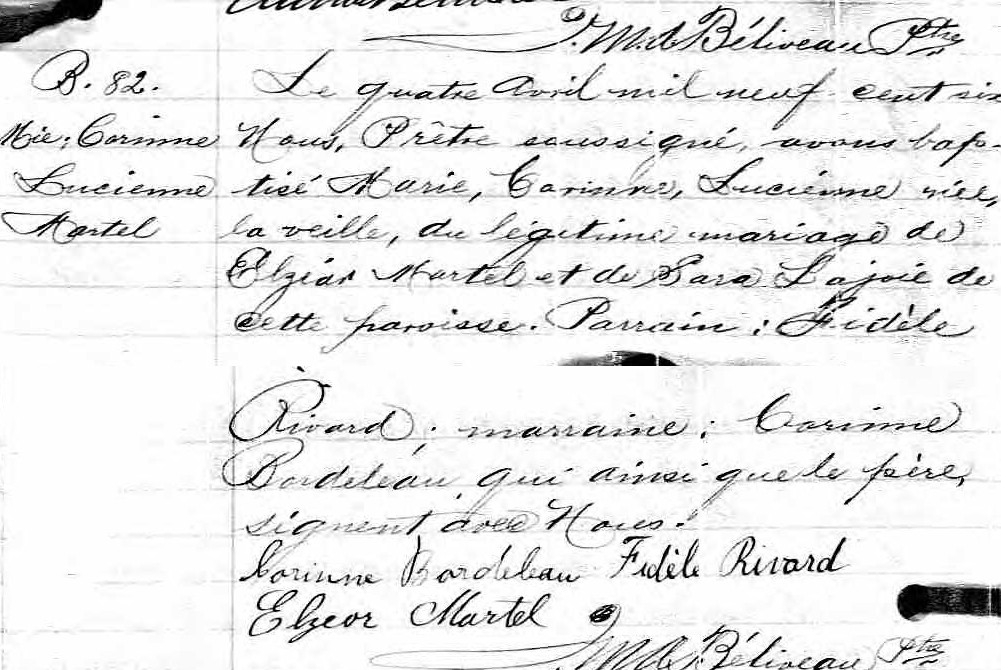 J. M. A. Béliveau Ptre
B. 82.
Mie; Corinne
Lucienne
Martel
Le quatre Avril mil neuf cent six
Nous, Prêtre soussigné, avons bap-
tisé Marie, Corinne, Lucienne née,
la veille, du légitime mariage de
Elzéar Martel et de Sara Lajoie de
cette paroisse. Parrain : Fidèle
Rivard ; marraine : Corinne
Bordeleau qui ainsi que le père,
signent avec Nous.
Corinne Bordeleau Fidèle Rivard
Elzeor Martel
J. M. A. Béliveau Ptre